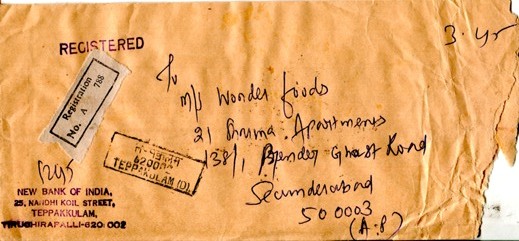 REGISTERED
3. yr
Registration
No. A 788
To
M/s Wonder foods
21 Apartments
138/1, Ghast Road
Secunderabad
500003
(A.P)
620002
TEPPAKULAM (D)
NEW BANK OF INDIA,
25, NANDHI KOIL STREET,
TEPPAKKULAM,
TIRUCHIRAPALLI-620 002